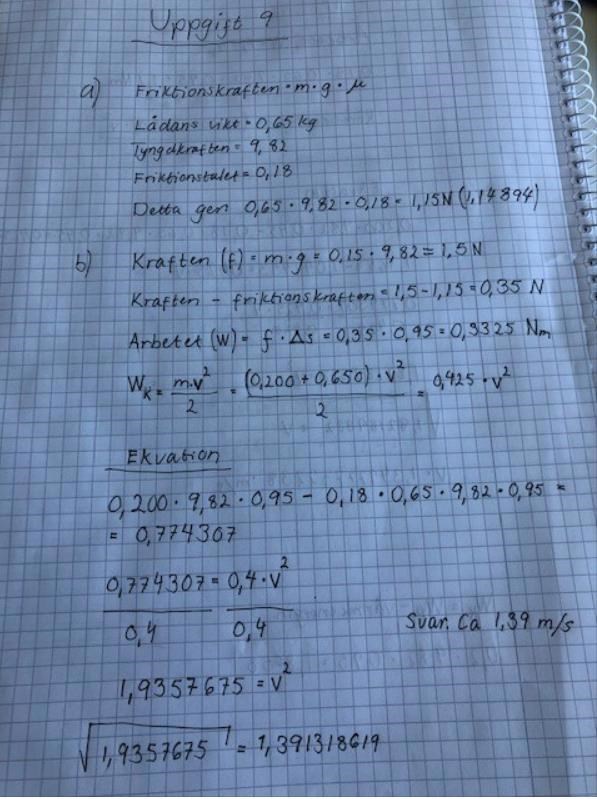 Uppgift 9
a) Friktionskraften = m · g · μ
Lådans vikt = 0,65 kg
Tyngdkraften = 9,82
Friktionstalet = 0,18
Detta ger 0,65 · 9,82 · 0,18 = 1,15N (1,14894)
b) Kraften (f) = m · g = 0,15 · 9,82 = 1,5 N
Kraften - friktionskraften = 1,5 - 1,15 = 0,35 N
Arbetet (W) = f · Δs = 0,35 · 0,95 = 0,3325 Nm
Wk = m·v²/2 = (0,200 + 0,650) · v²/2 = 0,425 · v²
Ekvation
0,200 · 9,82 · 0,95 - 0,18 · 0,65 · 9,82 · 0,95 =
= 0,774307
0,774307/0,4 = 0,4 · v²/0,4
Svar. Ca 1,39 m/s
1,9357675 = v²
√1,9357675 = 1,391318619